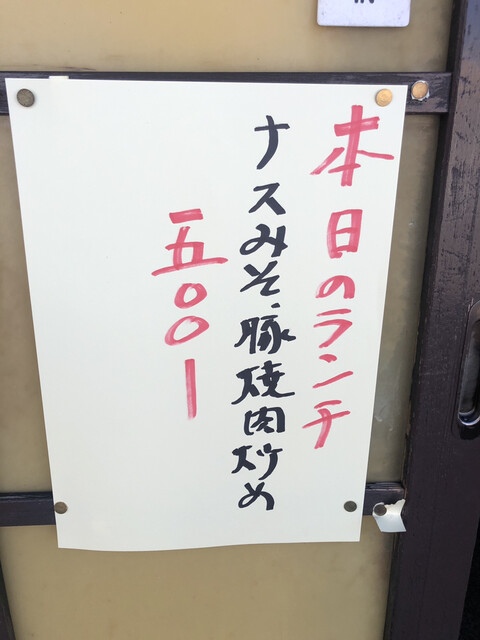 IN
本日のランチ
ナスみそ、豚焼肉炒め
一五〇〇ー